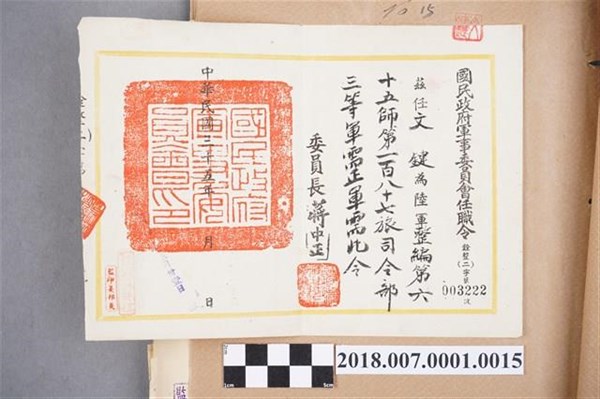 國民政府軍事委員會任職令
銓整(二)字第
003222
號
茲任文 鍵為陸軍整編第六
十五師第一百八十七旅司令部
三等軍需正軍需此令
委員長蔣中正
中華民國三十五年 月 日
國民政府軍事委員會印
監印
2018.007.0001.0015